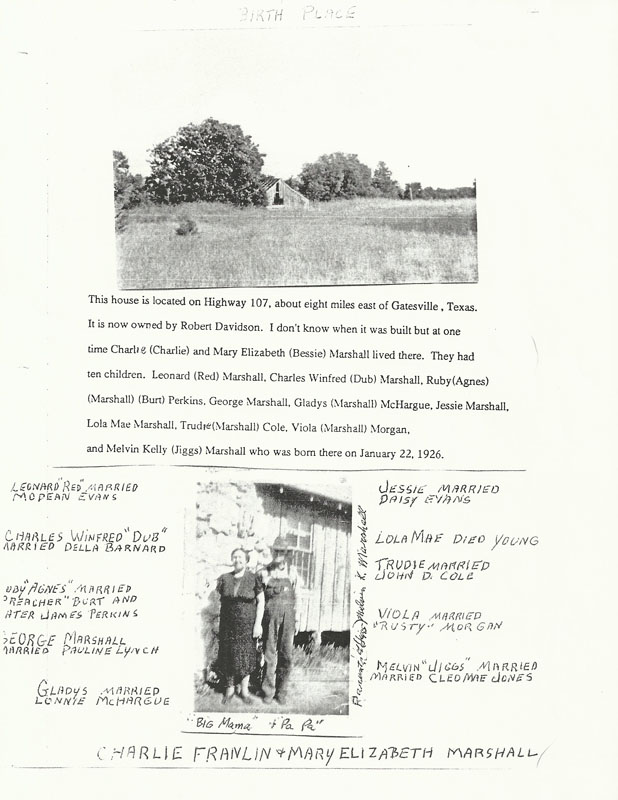 BIRTH PLACE
This house is located on Highway 107, about eight miles east of Gatesville, Texas.
It is now owned by Robert Davidson. I don't know when it was built but at one
time Charlie (Charlie) and Mary Elizabeth (Bessie) Marshall lived there. They had
ten children. Leonard (Red) Marshall, Charles Winfred (Dub) Marshall, Ruby(Agnes)
(Marshall) (Burt) Perkins, George Marshall, Gladys (Marshall) McHargue, Jessie Marshall,
Lola Mae Marshall, Trudie(Marshall) Cole, Viola (Marshall) Morgan,
and Melvin Kelly (Jiggs) Marshall who was born there on January 22, 1926.
LEONARD "RED" MARRIED
MODEAN EVANS
CHARLES WINFRED "DUB"
MARRIED DELLA BARNARD
UBY "AGNES" MARRIED
PREACHER" BURT AND
ATER JAMES PERKINS
GEORGE MARSHALL
MARRIED PAULINE LYNCH
GLADYS MARRIED
LONNIE McHARGUE
Melvin K. Marshall
JESSIE MARRIED
DAISY EVANS
LOLA MAE DIED YOUNG
TRUDIE MARRIED
JOHN D. COLE
VIOLA MARRIED
"RUSTY" MORGAN
MELVIN "JIGGS" MARRIED
MARRIED CLEO MAE JONES
"BIG Mama" + "Pa Pa"
CHARLIE FRANLIN + MARY ELIZABETH MARSHALL